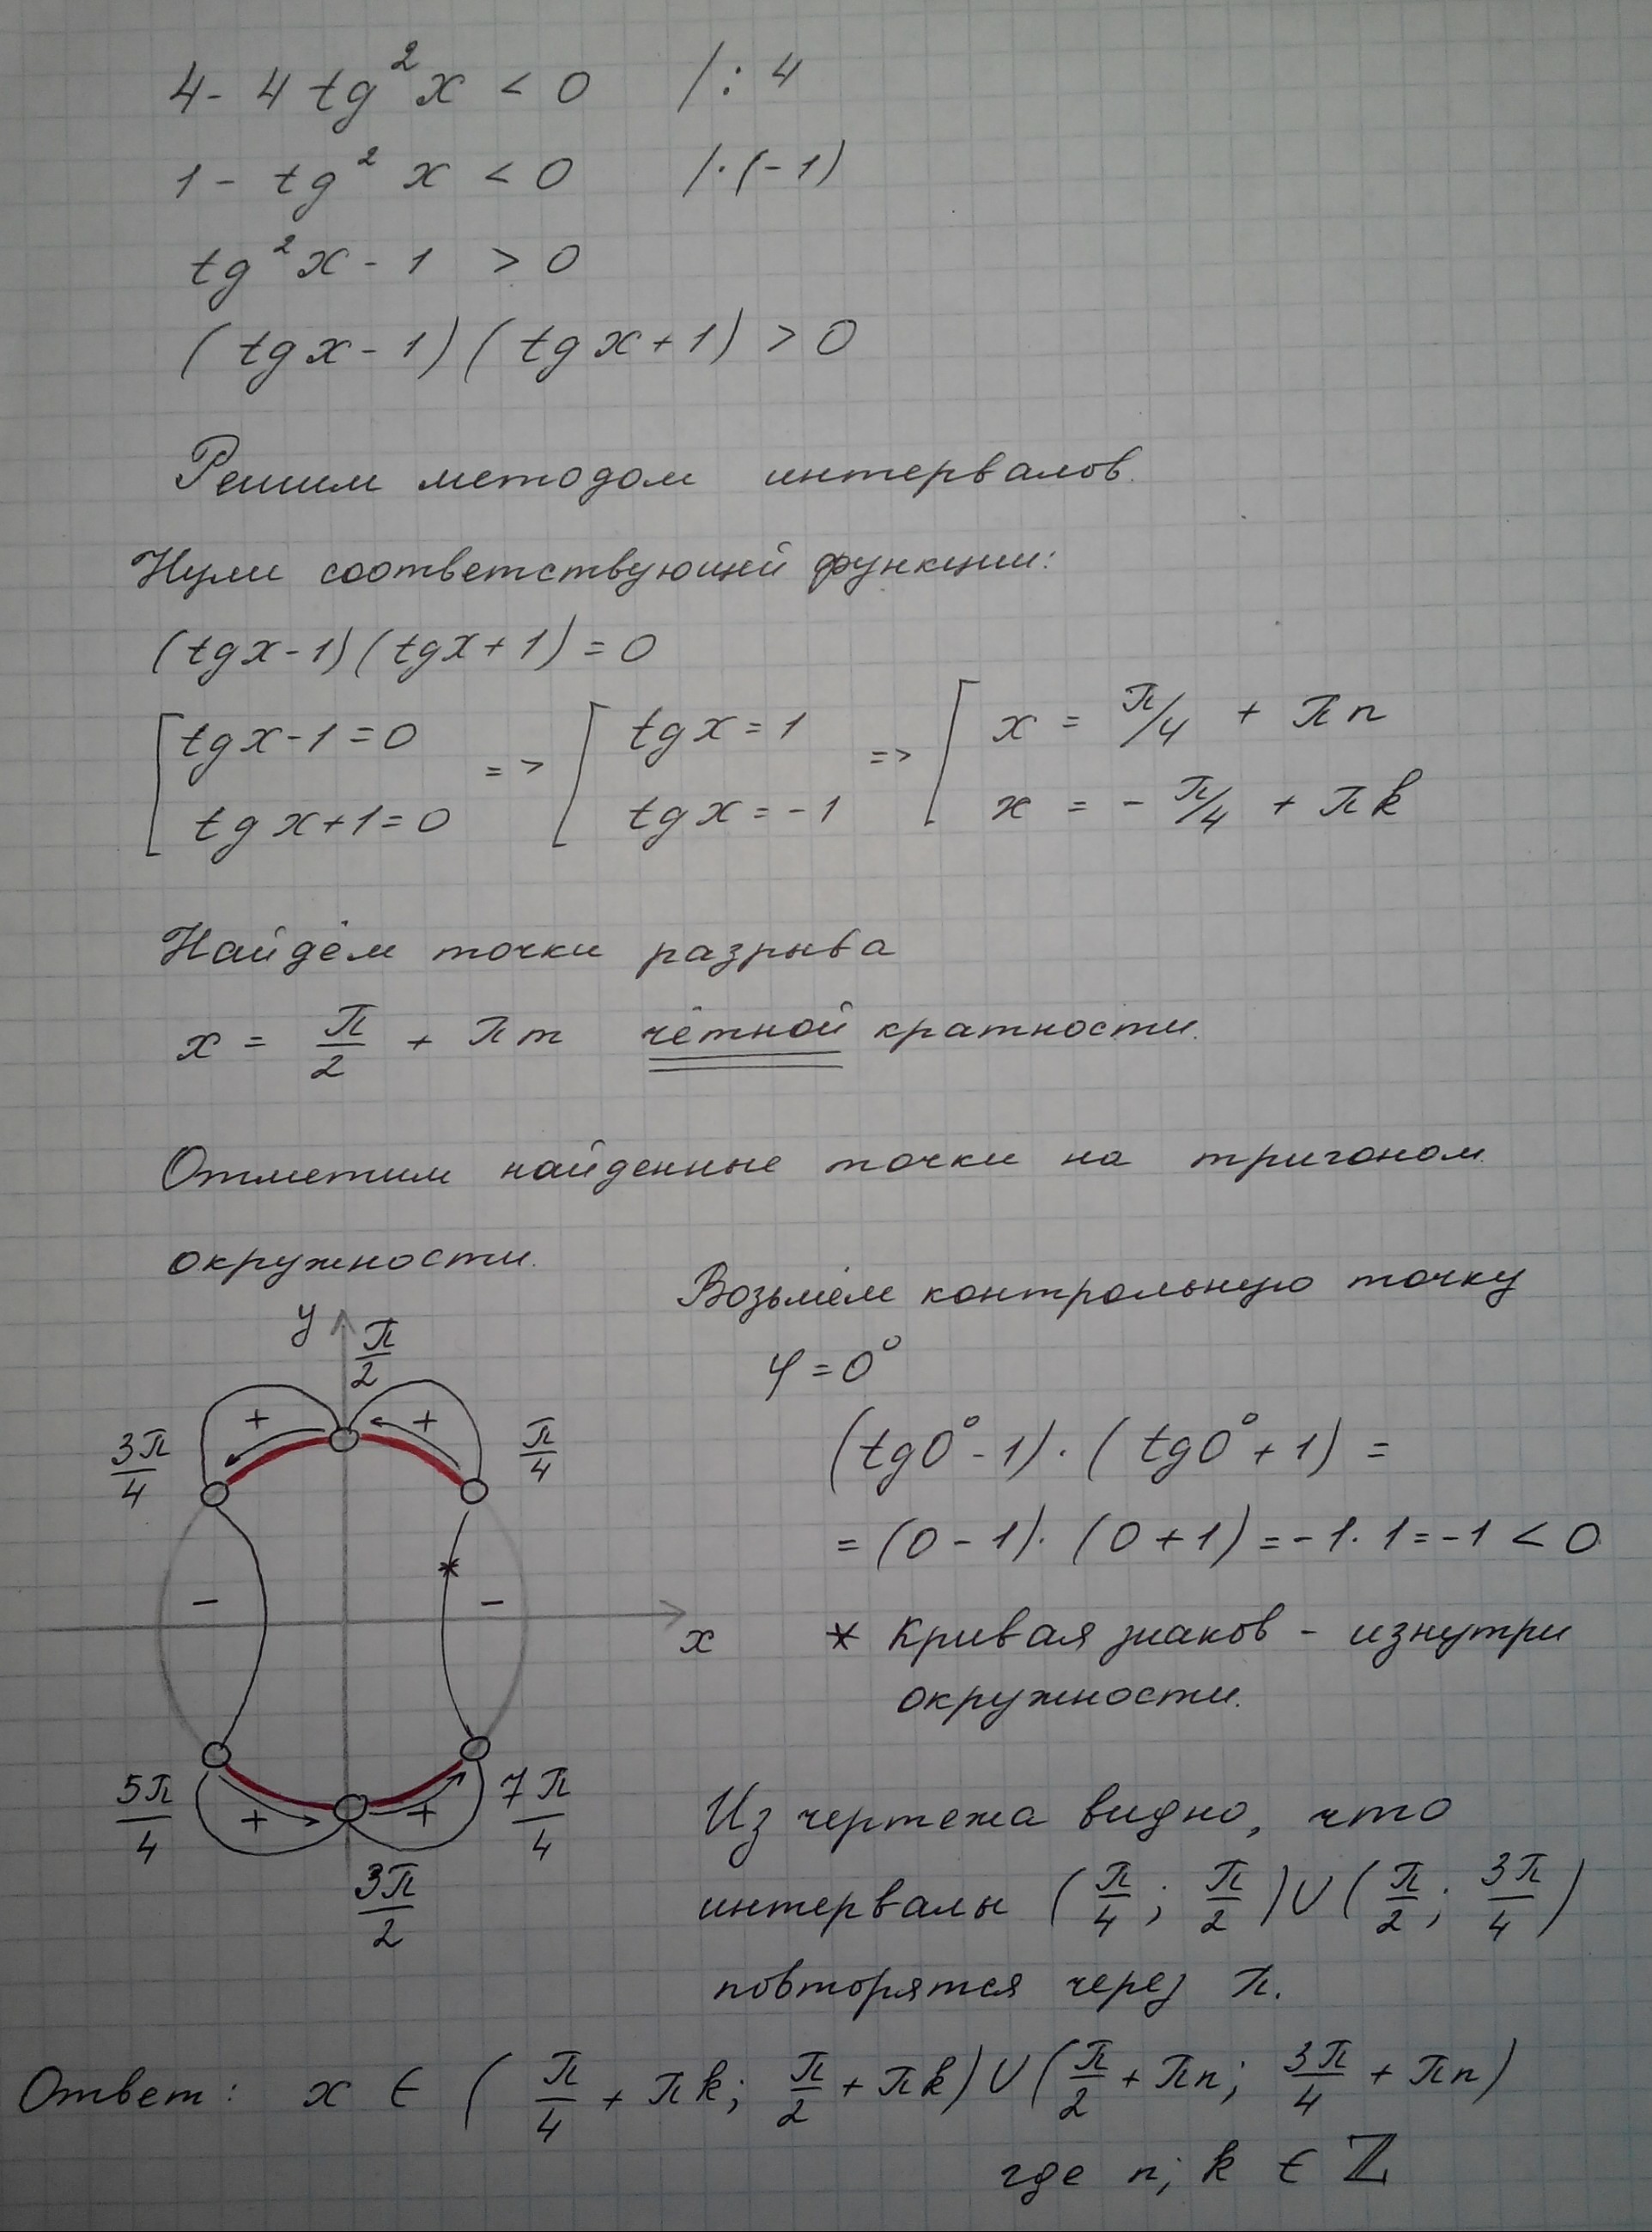 4 - 4 tg²x < 0 /: 4
1 - tg² x < 0 /·(-1)
tg²x - 1 > 0
(tgx - 1)(tgx + 1) > 0
Решим методом интервалов.
Нули соответствующей функции:
(tgx - 1)(tgx + 1) = 0
[ tgx - 1 = 0 => [ tgx = 1 => [ x = π/4 + πn
tgx + 1 = 0 tgx = -1 x = - π/4 + πk
Найдём точки разрыва
x = π/2 + πm чётной кратности.
Отметим найденные точки на тригоном.
окружности.
Возьмём контрольную точку
y
π/2
φ = 0°
+ +
3π/4
π/4
(tg0° - 1)·(tg0° + 1) =
= (0 - 1)·(0 + 1) = -1·1 = -1 < 0
*
- -
x
* Кривая знаков - изнутри
окружности.
5π/4
7π/4
+ +
3π/2
Из чертежа видно, что
интервалы (π/4; π/2)∪(π/2; 3π/4)
повторятся через π.
Ответ: x ∈ (π/4 + πk; π/2 + πk)∪(π/2 + πn; 3π/4 + πn)
где n; k ∈ ℤ